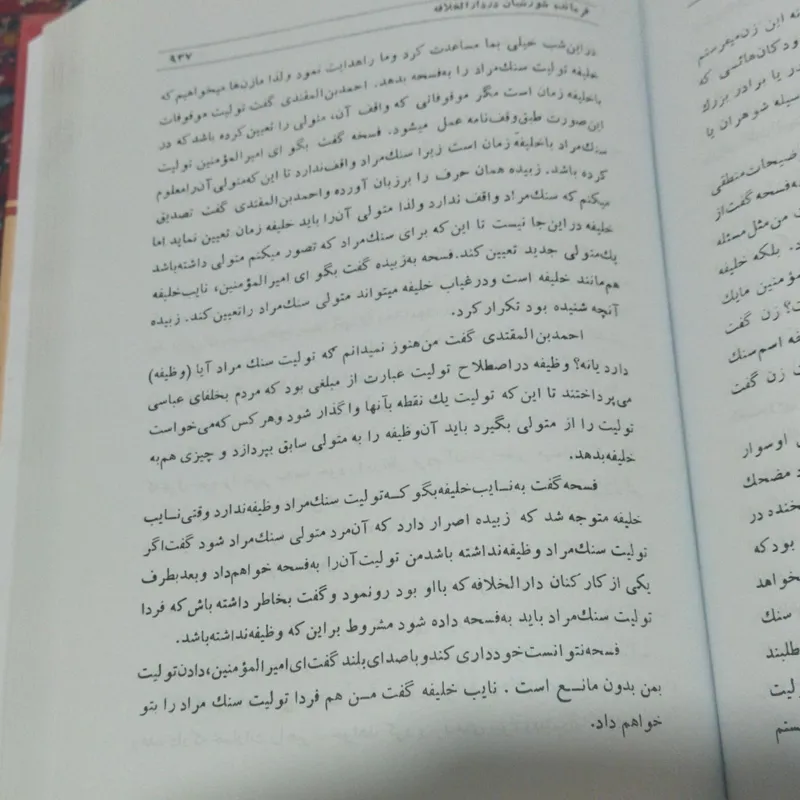 فرمانده شورشیان در دارالخلافه
۹۳۷
در این شب خیلی بما مساعدت کرد وما راهدایت نمود ولذا مازن‌ها میخواهیم که
خلیفه تولیت سنك مراد را به‌فسحه بدهد. احمدبن‌المقتدی گفت تولیت موقوفات
باخلیفه زمان است مگر موقوفاتی که واقف آن، متولی را تعیین کرده باشد که در
این صورت طبق وقف‌نامه عمل میشود. فسحه گفت بگو ای امیرالمؤمنین تولیت
سنك مراد باخلیفه زمان است زیرا سنك مراد واقف ندارد تا این که متولی آن را معلوم
کرده باشد. زبیده همان حرف را برزبان آورده و احمدبن‌المقتدی گفت تصدیق
میکنم که سنك مراد واقف ندارد ولذا متولی آن‌را باید خلیفه زمان تعیین نماید اما
خلیفه در این جا نیست تا این که برای سنك مراد که تصور میکنم متولی داشته‌باشد
یك متولی جدید تعیین کند. فسحه به‌زبیده گفت بگو ای امیرالمؤمنین، نایب خلیفه
هم‌مانند خلیفه است ودرغیاب خلیفه میتواند متولی سنك مراد راتعیین کند. زبیده
آنچه شنیده بود تکرار کرد.
احمدبن‌المقتدی گفت من هنوز نمیدانم که تولیت سنك مراد آیا (وظیفه)
دارد یانه؟ وظیفه در اصطلاح تولیت عبارت از مبلغی بود که مردم بخلفای عباسی
می‌پرداختند تا این که تولیت یك نقطه بآنها واگذار شود وهر کس که می‌خواست
تولیت را از متولی بگیرد باید آن وظیفه را به متولی سابق بپردازد و چیزی هم به
خلیفه بدهد.
فسحه گفت به‌نسایب خلیفه بگو کسه تولیت سنك مراد وظیفه ندارد وقتی نسایب
خلیفه متوجه شد که زبیده اصرار دارد که آن مرد متولی سنك مراد شود گفت اگر
تولیت سنك مراد وظیفه نداشته باشد من تولیت آن را به فسحه خواهم داد وبعد بطرف
یکی از کارکنان دارالخلافه که بااو بود رونمود وگفت بخاطر داشته باش که فردا
تولیت سنك مراد باید به‌فسحه داده شود مشروط براین که وظیفه نداشته باشد.
فسحه نتوانست خودداری کند وباصدای بلند گفت ای امیرالمؤمنین، دادن تولیت
بمن بدون مانسع است . نایب خلیفه گفت مسن هم فردا تولیت سنك مراد را بتو
خواهم داد.
ـه این زن میفرستم
ود کان‌هائسی که
در یا برادر بزرك
سیله شوهران یا
ضیحات منطقی
ـه فسحه گفت از
ت من مثل مسئله
د. بلکه خلیفه
ؤمنین مایك
ت؟ زن گفت
خه اسم سنك
ت زن گفت
ی اوسوار
د مضحك
خنده در
بود که
خواهد
سنك
طلبند
ولیت
ستم